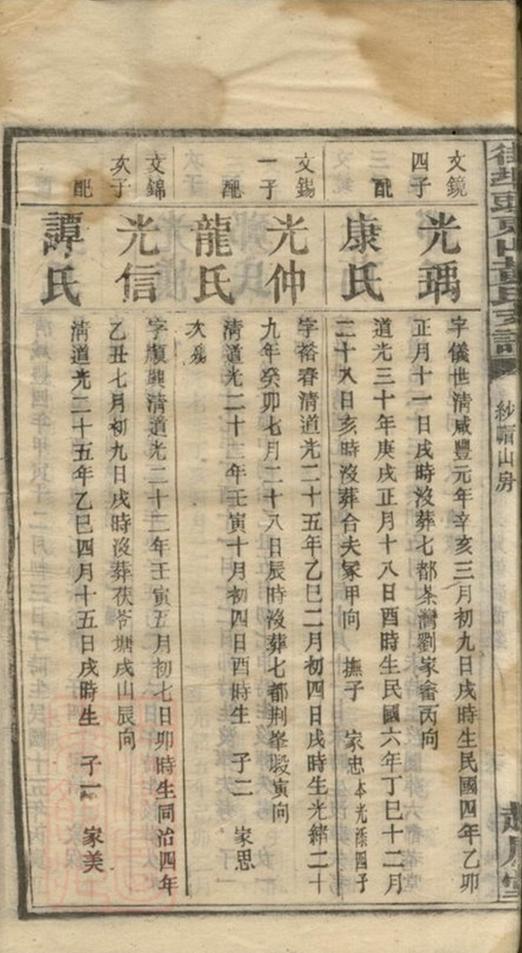 文鏡
四子
光瑀
字儀世清咸豐元年辛亥三月初九日戌時生民國四年乙卯
正月十一日戌時沒葬七都茶灣劉家畬丙向
配
康氏
道光三十年庚戌正月十八日酉時生民國六年丁巳十二月
二十八日亥時沒葬合夫冢甲向 撫子 家忠本光 四子
文錫
一子
光仲
字裕春清道光二十五年乙巳二月初四日戌時生光緒二十
九年癸卯七月二十八日辰時沒葬七都荆峯塅寅向
配
龍氏
清道光二十二年壬寅十月初四日酉時生 子二 家思
次殤
文錦
次子
光信
字 興清道光二十二年壬寅五月初七日卯時生同治四年
乙丑七月初九日戌時沒葬茯苓塘戌山辰向
配
譚氏
清道光二十五年乙巳四月十五日戌時生 子一 家美
紗帽山房